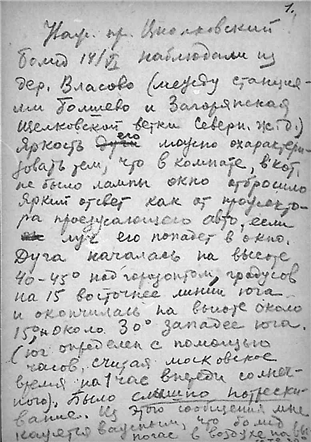 1.
Науч. пр. Циолковский
Болид 14/VI наблюдали из
дер. Власово (между станция-
ми Болшево и Загорянская
Щелковской ветки Северн. ж.д.)
Яркость его можно охарактери-
зовать тем, что в комнате, в кот.
не было лампы окно отбросило
яркий отсвет как от прожекто-
ра проезжающего авто, если
луч его попадет в окно.
Дуга началась на высоте
40-45° над горизонтом, градусов
на 15 восточнее линии юга
и окончилась на высоте около
15° около 30° западее юга.
(юг определен с помощью
часов, считая московское
время на 1 час впереди солнеч-
ного). Было слышно потрески-
вание. Из этого сообщения мне
кажется важным, что болид
погас в воздухе на